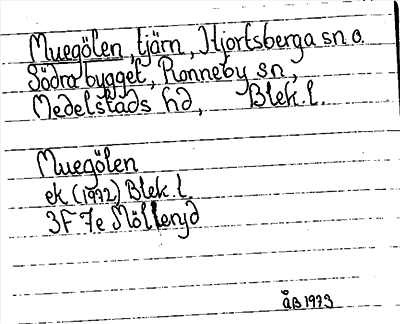 Muegölen, tjärn, Hjortsberga sn o.
Södra bygget, Ronneby sn,
Medelstads hd, Blek. l.
Muegölen
ek (1972) Blek l.
3F 7e Möllenyd
ÅB 1973